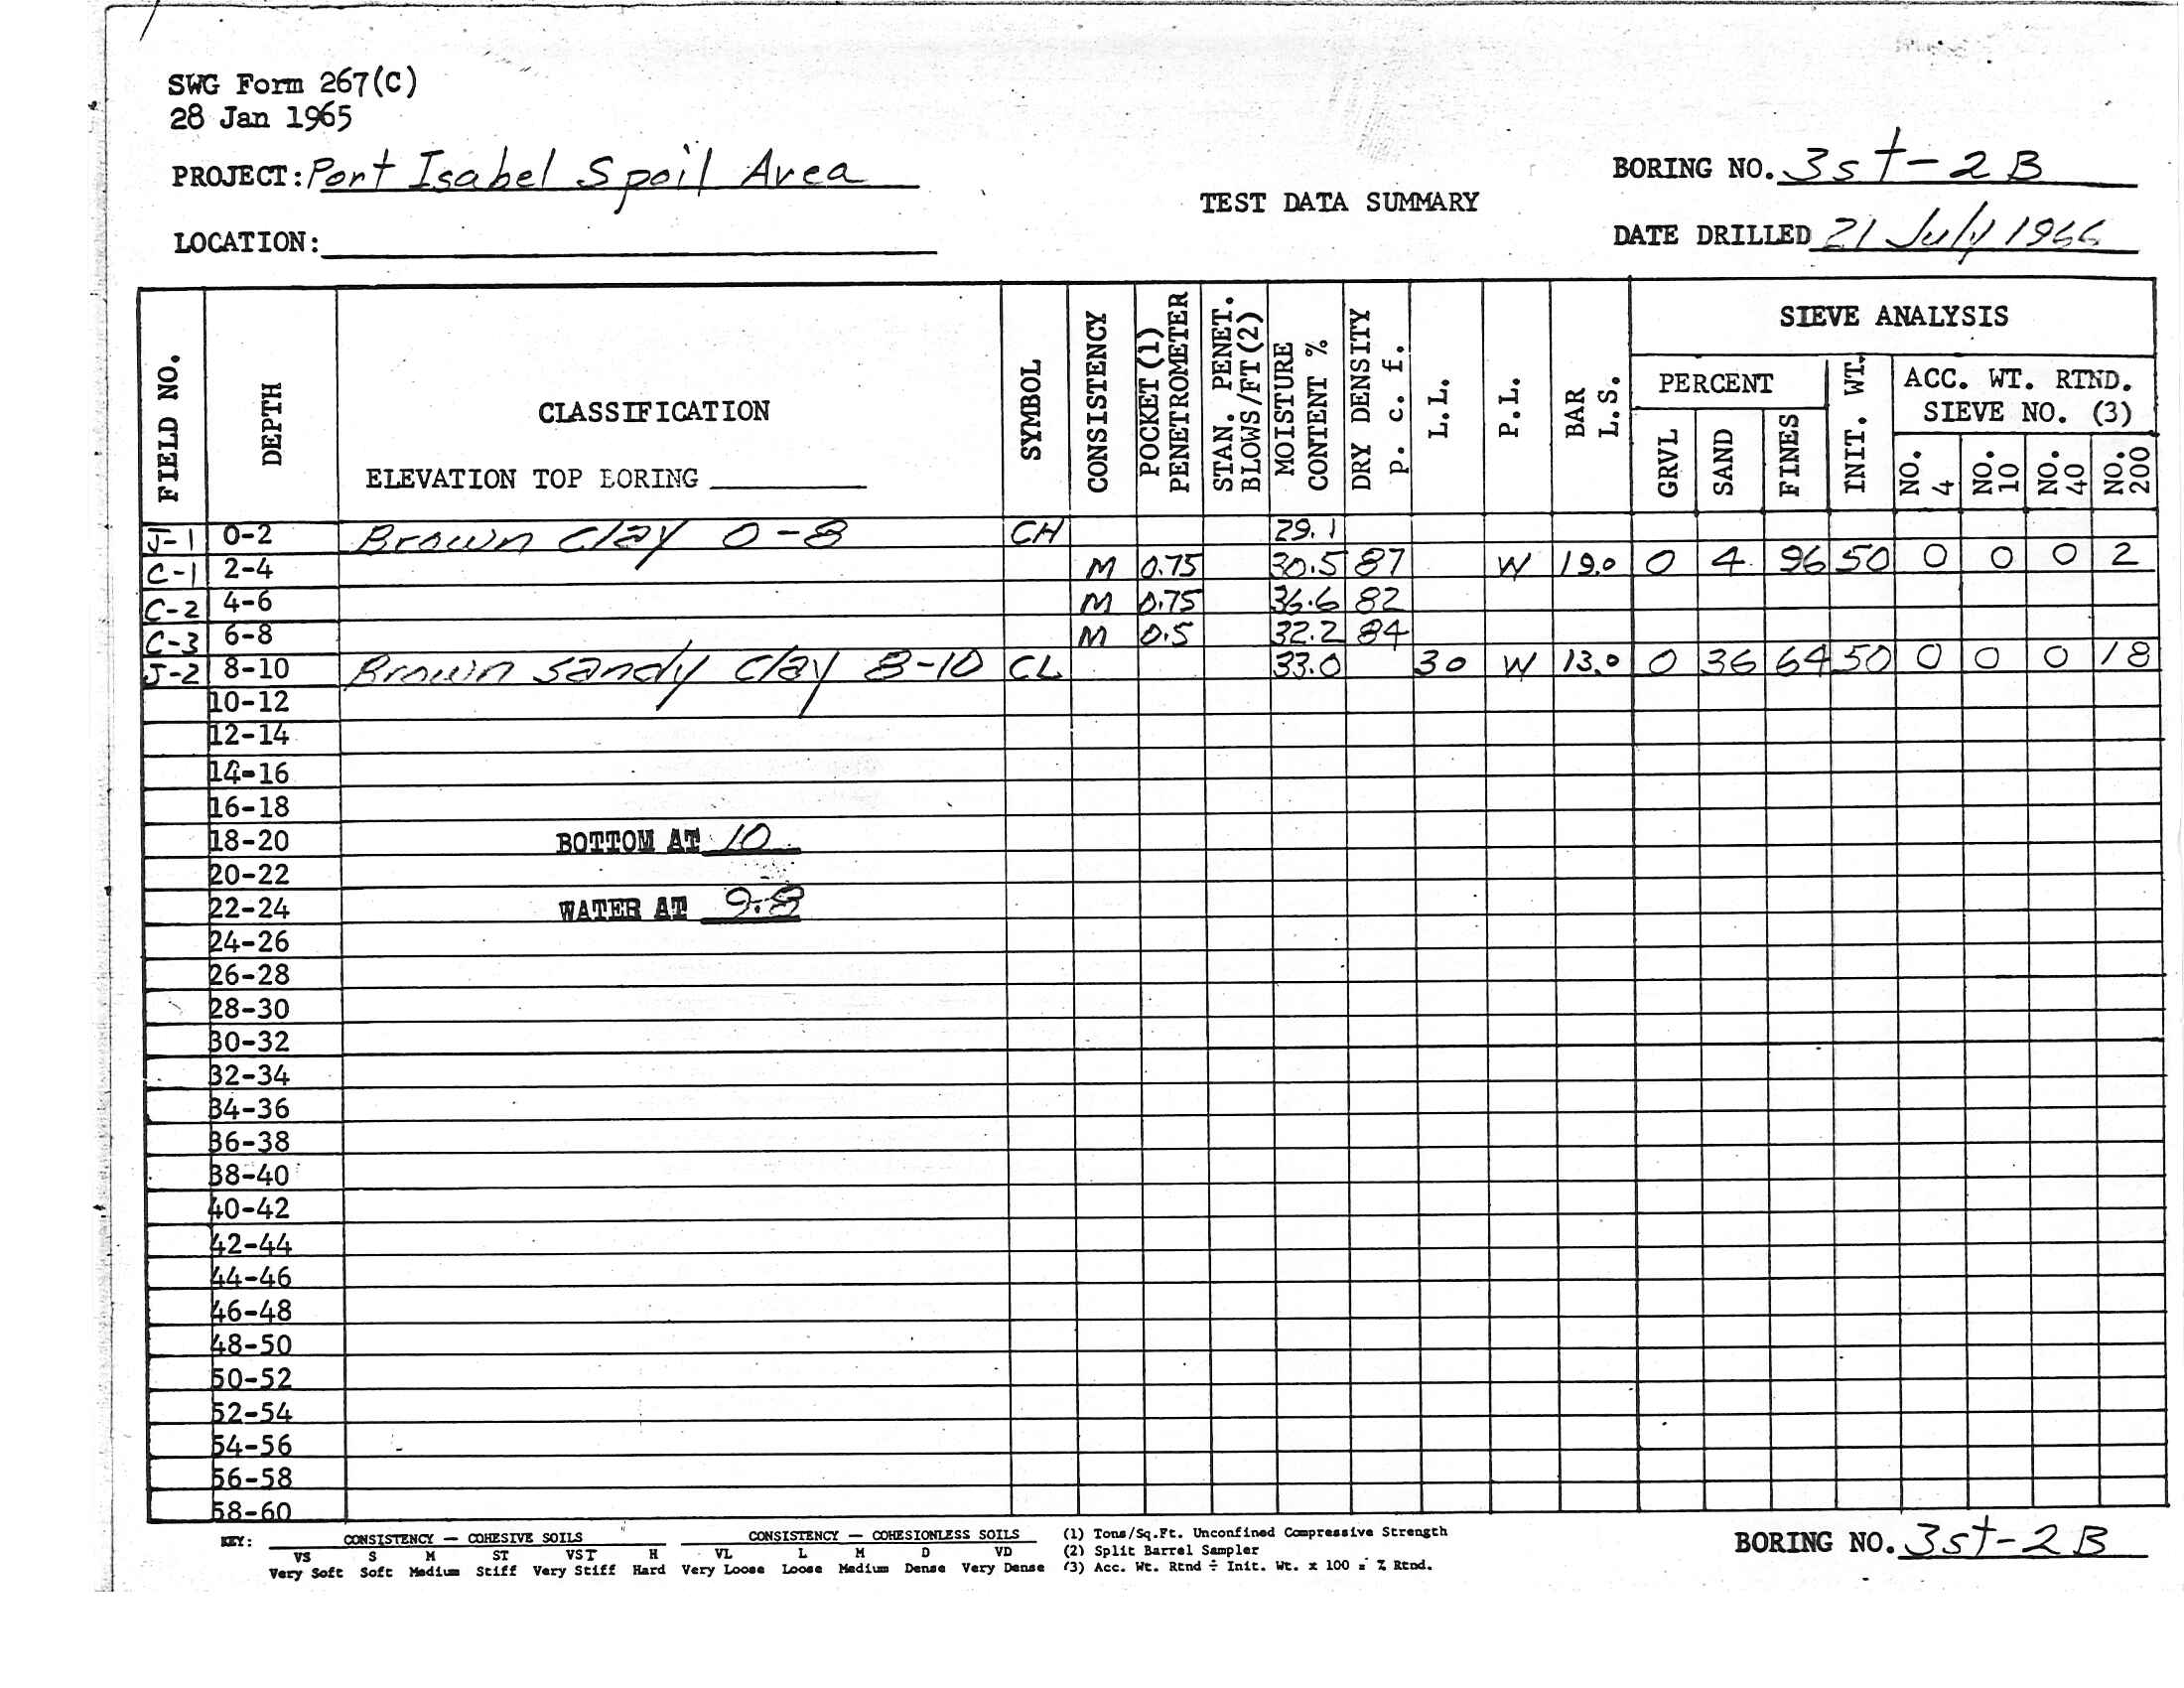 SWG Form 267(C)
28 Jan 1965
PROJECT: Port Isabel Spoil Area
BORING NO. 3st-2B
TEST DATA SUMMARY
LOCATION:
DATE DRILLED 21 July 1966
FIELD NO.
DEPTH
CLASSIFICATION
ELEVATION TOP BORING
SYMBOL
CONSISTENCY
POCKET (1) PENETROMETER
STAN. PENET. BLOWS/FT (2)
MOISTURE CONTENT %
DRY DENSITY p. c. f.
L.L.
P.L.
BAR L.S.
SIEVE ANALYSIS
PERCENT
GRVL
SAND
FINES
INIT. WT.
ACC. WT. RTND.
SIEVE NO. (3)
NO. 4
NO. 10
NO. 40
NO. 200
J-1 0-2 Brown clay 0-8 CH 29.1
C-1 2-4 M 0.75 30.5 87 W 19.0 0 4 96 50 0 0 0 2
C-2 4-6 M 0.75 36.6 82
C-3 6-8 M 0.5 32.2 84
J-2 8-10 Brown sandy clay 8-10 CL 33.0 30 W 13.0 0 36 64 50 0 0 0 18
10-12
12-14
14-16
16-18
18-20 BOTTOM AT 10
20-22
22-24 WATER AT 9.8
24-26
26-28
28-30
30-32
32-34
34-36
36-38
38-40
40-42
42-44
44-46
46-48
48-50
50-52
52-54
54-56
56-58
58-60
KEY: CONSISTENCY — COHESIVE SOILS CONSISTENCY — COHESIONLESS SOILS (1) Tons/Sq.Ft. Unconfined Compressive Strength
VS S M ST VST H VL L M D VD (2) Split Barrel Sampler
Very Soft Soft Medium Stiff Very Stiff Hard Very Loose Loose Medium Dense Very Dense (3) Acc. Wt. Rtnd ÷ Init. Wt. x 100 = % Rtnd.
BORING NO. 3st-2B